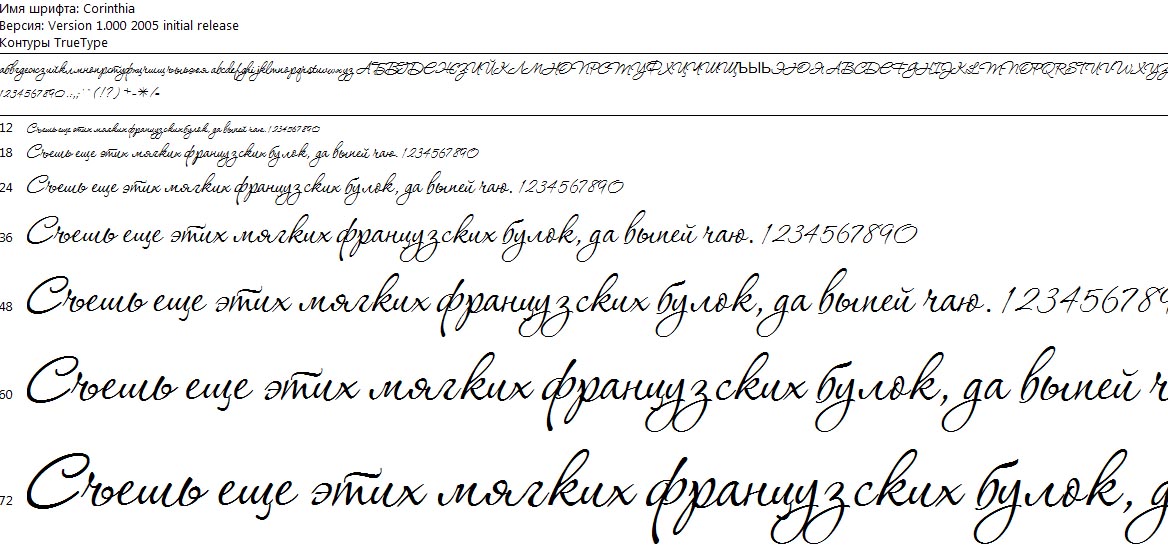 Имя шрифта: Corinthia
Версия: Version 1.000 2005 initial release
Контуры TrueType
абвгдежзийклмнопрстуфхцчшщъыьэюя abcdefghijklmnopqrstuvwxyz АБВГДЕЖЗИЙКЛМНОПРСТУФХЦЧШЩЪЫЬЭЮЯ ABCDEFGHIJKLMNOPQRSTUVWXYZ
1234567890.:,;`´ (!?) +-*/=
12 Съешь еще этих мягких французских булок, да выпей чаю. 1234567890
18 Съешь еще этих мягких французских булок, да выпей чаю. 1234567890
24 Съешь еще этих мягких французских булок, да выпей чаю. 1234567890
36 Съешь еще этих мягких французских булок, да выпей чаю. 1234567890
48 Съешь еще этих мягких французских булок, да выпей чаю. 123456789
60 Съешь еще этих мягких французских булок, да выпей ч
72 Съешь еще этих мягких французских булок, д